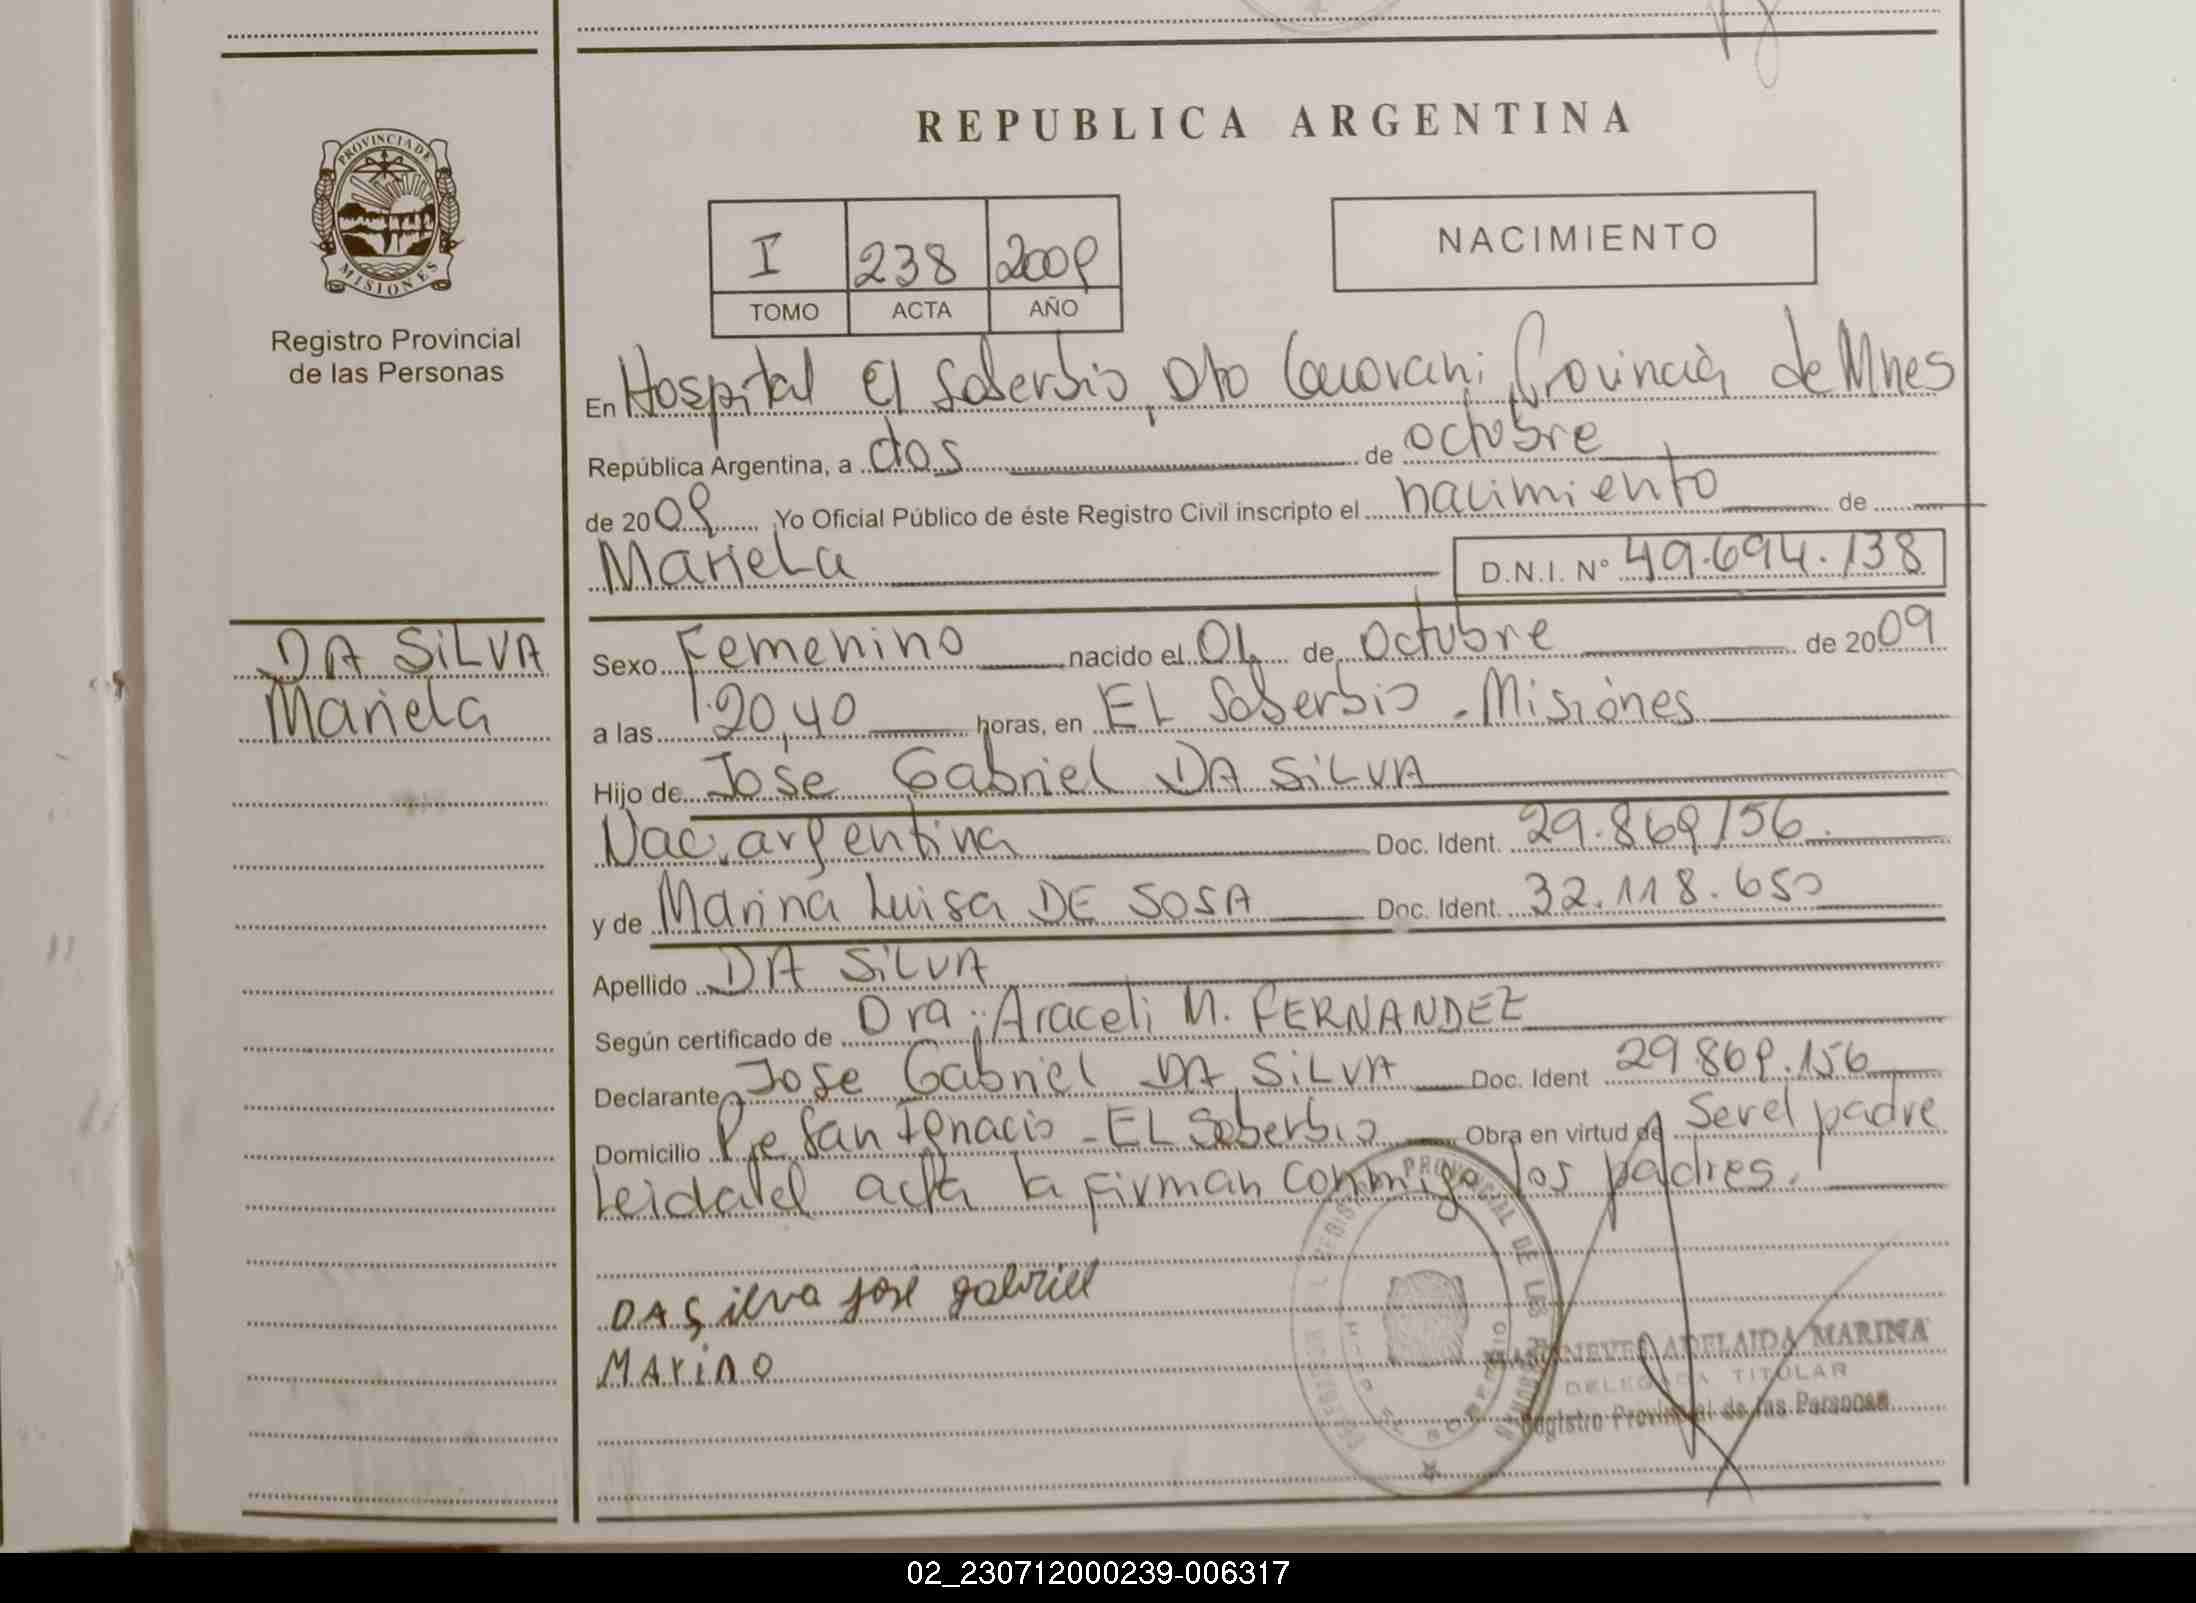 REPUBLICA ARGENTINA
PROVINCIA DE
MISIONES
Registro Provincial
de las Personas
I 238 2009
TOMO ACTA AÑO
NACIMIENTO
En Hospital El Soberbio, Dto Guarani, Provincia de Mnes
República Argentina, a dos de octubre
de 2009 Yo Oficial Público de éste Registro Civil inscripto el nacimiento de
Mariela D.N.I. Nº 49.694.138
DA SiLVA
Mariela
Sexo Femenino nacido el 01 de Octubre de 2009
a las 20,40 horas, en EL Soberbio - Misiones
Hijo de Jose Gabriel DA SiLVA
Nac. argentina Doc. Ident. 29.869156.
y de Marina Luisa DE SOSA Doc. Ident. 32.118.650
Apellido DA SiLVA
Según certificado de Dra: Araceli M. FERNANDEZ
Declarante Jose Gabriel DA SiLVA Doc. Ident 29.869.156
Domicilio Pje San Ignacio - EL Soberbio Obra en virtud de Ser el padre
Leida el acta la firman conmigo los padres.
DA Silva jose gabriel
MArinO
ADELAIDA MARINA
DELEGADA TITULAR
Registro Provincial de las Personas
02_230712000239-006317